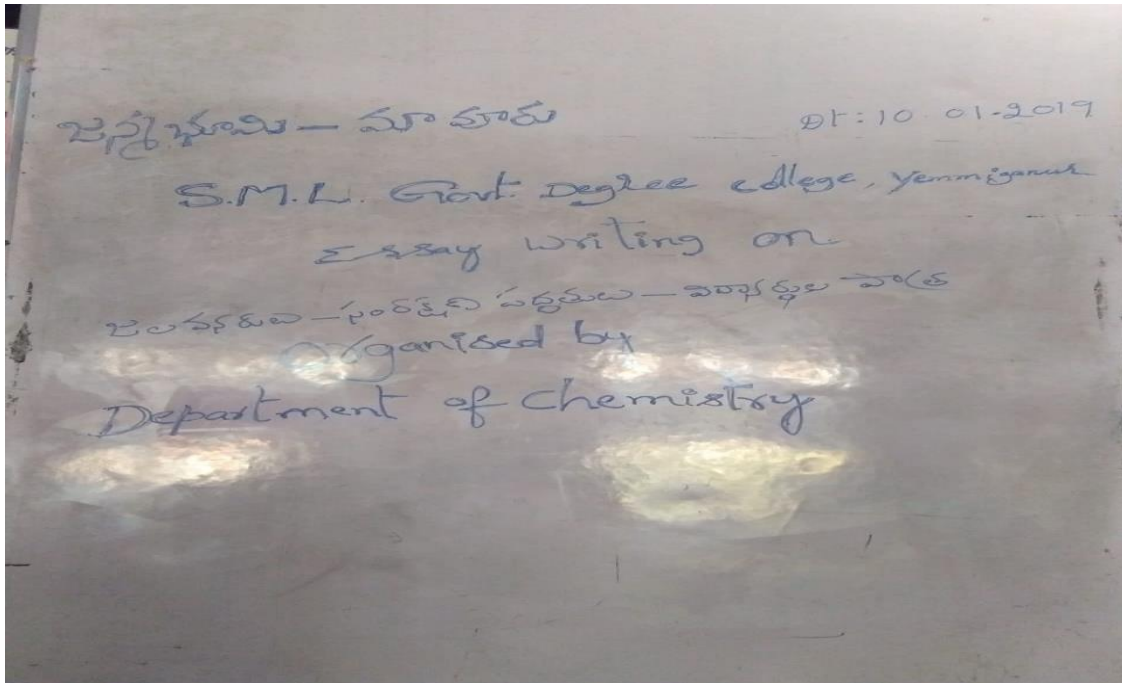 జన్మభూమి – మా వూరు Dt: 10 01-2019
S.M.L. Govt. Degree college, Yemmiganur
Essay writing on
జలవనరులు – సంరక్షణ పద్ధతులు – విద్యార్థుల పాత్ర
Organised by
Department of Chemistry